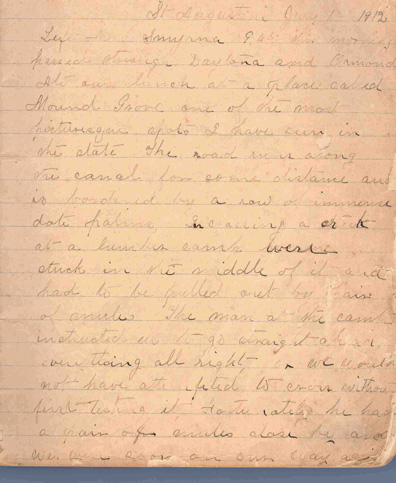 St Augustine Jany 1 1912
Left New Smyrna 9.45 this morning
passed through Daytona and Ormond
Ate our lunch at a place called
Mound Grove one of the most
picturesque spots I have seen in
the state The road runs along
the canal for some distance and
is bordered by a row of immense
date palms, In crossing a creek
at a lumber camp were
stuck in the middle of it and
had to be pulled out by pair
of mules The man at the camp
instructed us to go straight ahead
everything all right or we would
not have attempted to cross without
first testing it Fortunately he had
a pair of mules close by and
we were soon on our way again